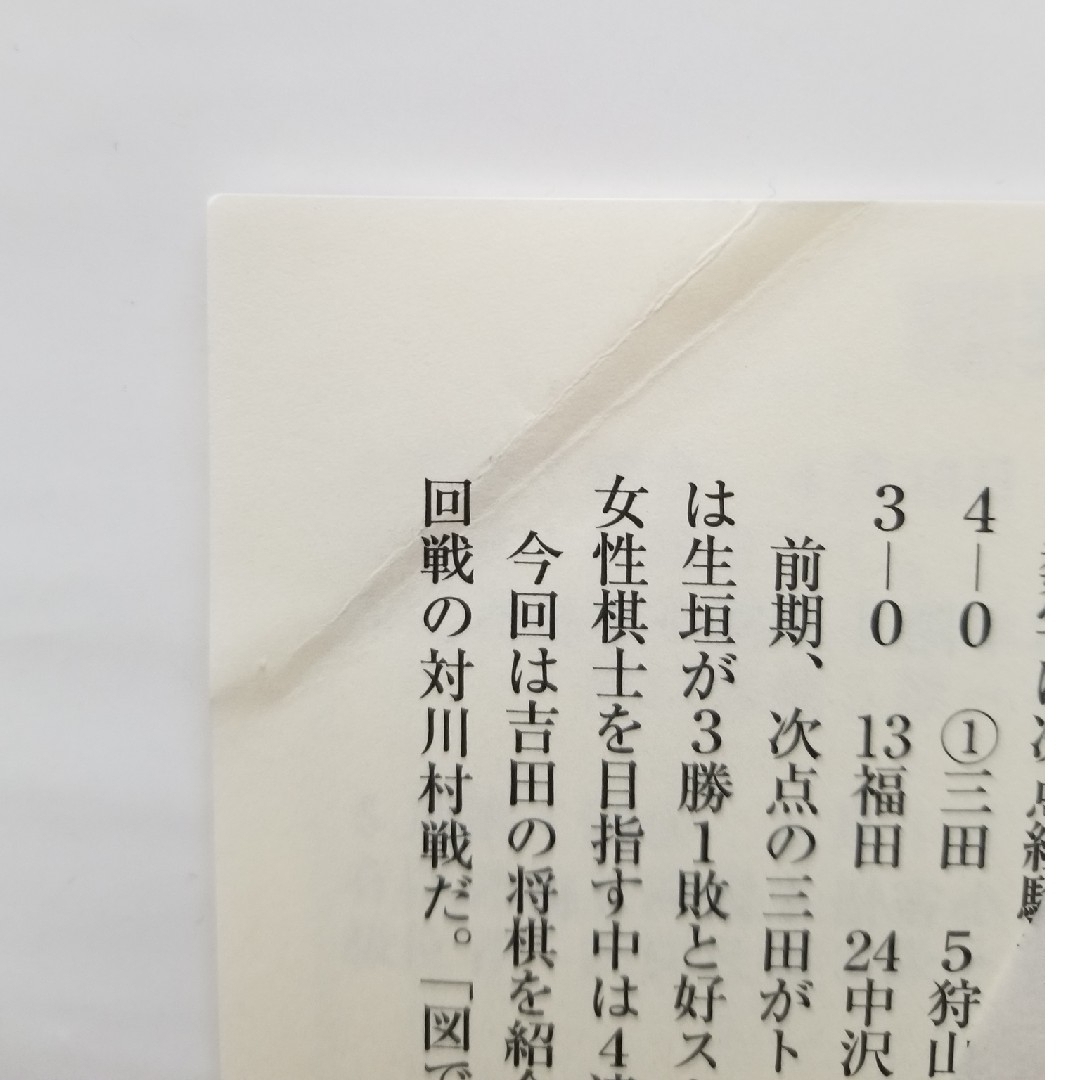 4―0　①三田　5狩山
3―0　13福田　24中沢
前期、次点の三田がト
は生垣が3勝1敗と好ス
女性棋士を目指す中は4
今回は吉田の将棋を紹
回戦の対川村戦だ。「図で